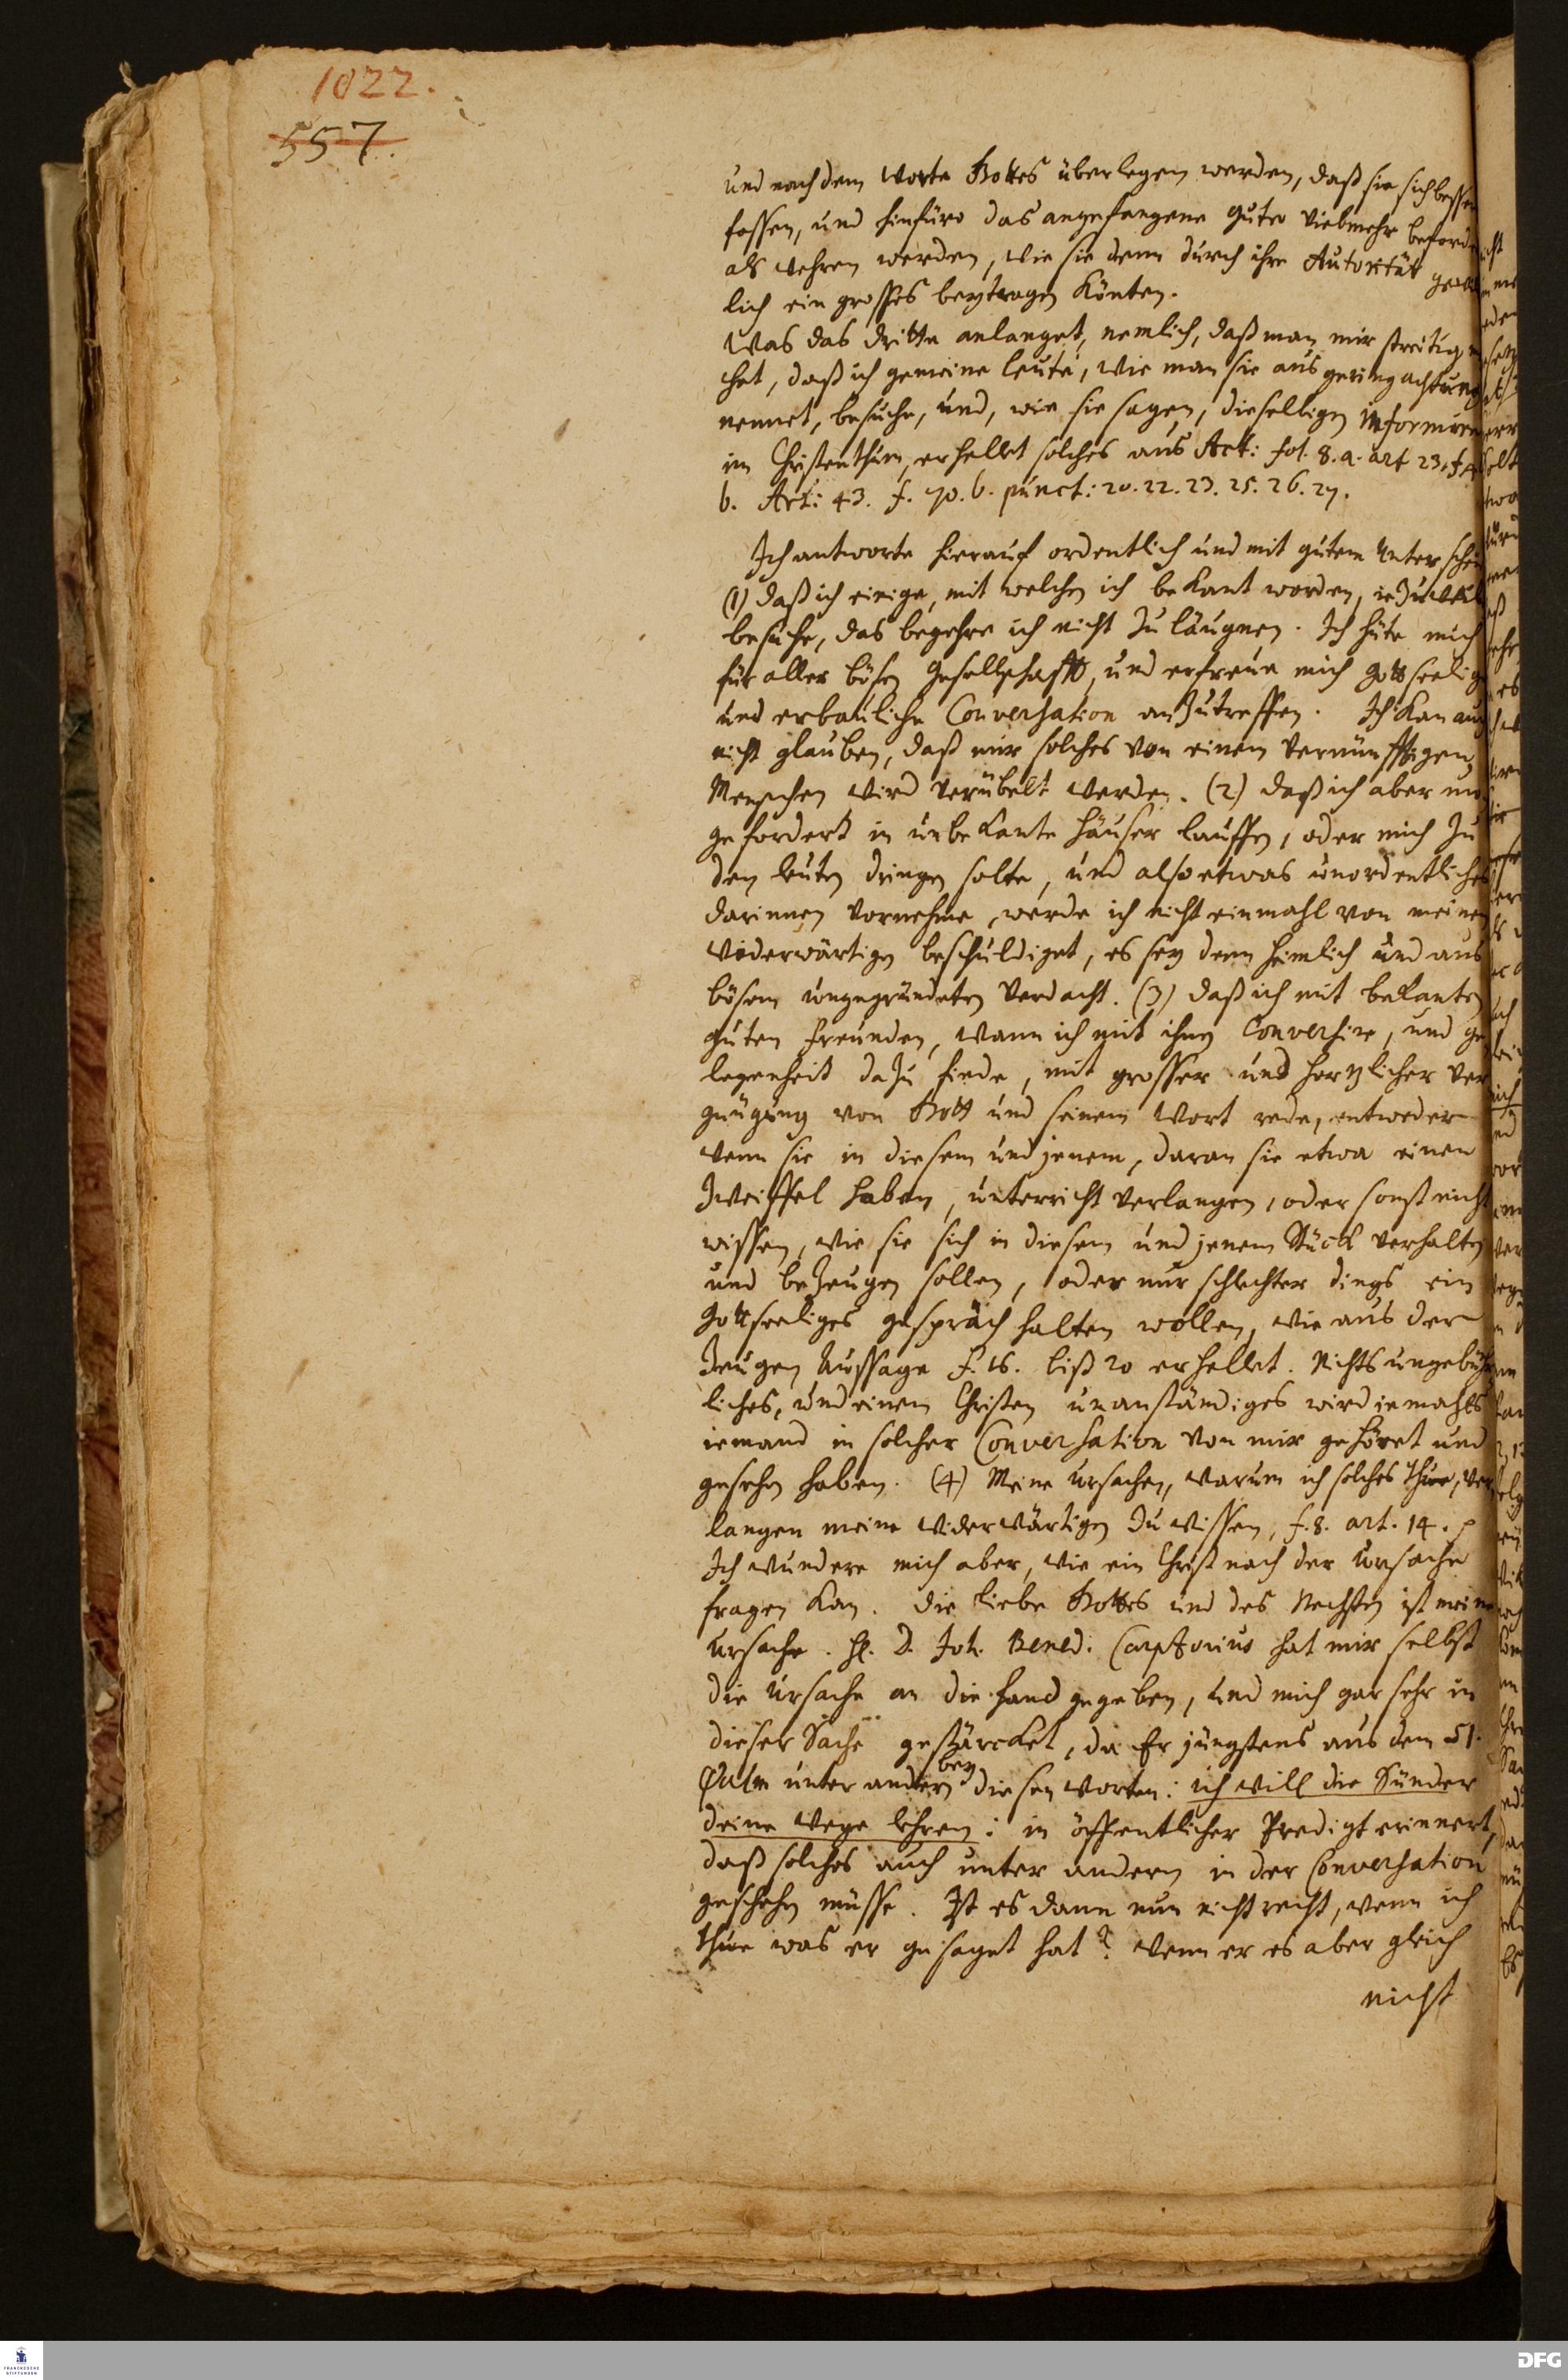 1022.
557.
und nach dem Worte Gottes überlegen werden, daß sie sich besser
fassen, und hinfüro das angefangene gute vielmehr beforde
als wehren werden, wie sie denn durch ihre Autorität
lich ein grosses beytragen könten.
Was das dritte anlanget, nemlich, daß man mir streitig
hat, daß ich gemeine leute, wie man sie aus geringachtung
nennet, besuche, und, wie sie sagen, dieselbigen informire
im Christenthum, erhellet solches aus Act: fol. 8. a. art 23.
b. Art: 43. f. 70. b. punct: 20. 22. 23. 25. 26. 27.
Ich antworte hierauf ordentlich und mit gutem Unterscheid
(1) daß ich einige, mit welchen ich bekant worden, iezuweil
besuche, das begehre ich nicht zu läugnen. Ich hüte mich
für aller bösen Gesellschafft, und erfreue mich gottseelige
und erbauliche Conversation anzutreffen. Ich kan auch
nicht glauben, daß mir solches von einem vernünfftigen
Menschen wird verübelt werden. (2) daß ich aber un
gefordert in unbekante häuser lauffen, oder mich zu
den leuten dringen solte, und also etwas unordentliches
darinnen vornehme, werde ich nicht einmahl von meinen
widerwärtigen beschuldiget, es sey denn heimlich und aus
bösem ungegründeten Verdacht. (3) daß ich mit bekanten
guten freunden, wann ich mit ihnen Conversire, und ge
legenheit dazu finde, mit grosser und hertzlicher ver
gnügung von Gott und seinem Wort rede, entweder
wenn sie in diesem und jenem, daran sie etwa einen
Zweiffel haben, unterricht verlangen, oder sonst nicht
wissen, wie sie sich in diesem und jenem Stück verhalten
und bezeugen sollen, oder nur schlechter dings ein
gottseeliges gespräch halten wollen, wie aus der
Zeugen Aussage f. 16. biß 20 erhellet. Nichts ungebühr
liches, und einem Christen unanständiges wird iemahls
iemand in solcher Conversation von mir gehöret und
gesehen haben. (4) Meine ursachen, warum ich solches thue, ver
langen meine widerwärtigen zu wissen, f. 8. art. 14.
Ich wundere mich aber, wie ein Christ nach der ursache
fragen kan. Die liebe Gottes und des Nechsten ist meine
ursache. H. D. Joh. Bened. Carpzovius hat mir selbst
die ursache an die hand gegeben, und mich gar sehr in
dieser Sache gestärcket, da Er jüngstens aus dem 51.
Psalm unter andern bey diesen worten: ich will die Sünder
deine wege lehren: in öffentlicher Predigt erinnert,
daß solches auch unter andern in der Conversation
geschehen müsse. Ist es dann nun nicht recht, wenn ich
thue was er gesaget hat? wenn er es aber gleich
nicht
FRANCKESCHE
STIFTUNGEN
DFG